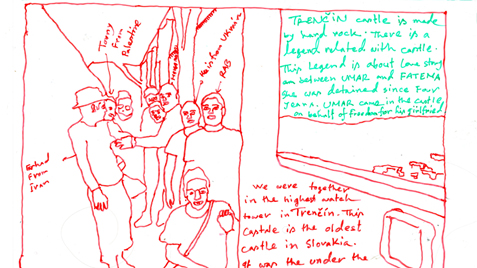 From
Palentine
He is from Ukrania
RAB
From
Iran
TRENČÍN castle is made
by hard rock. There is a
legend related with castle.
This legend is about Love story
between UMAR and FATEMA
she was detained since Four
UMAR came in the castle
on behalf of freedom for his girlfried
We were together
in the highest watch
tower in Trenčín. This
Castale is the oldest
castle in Slovakia.
It was the under the